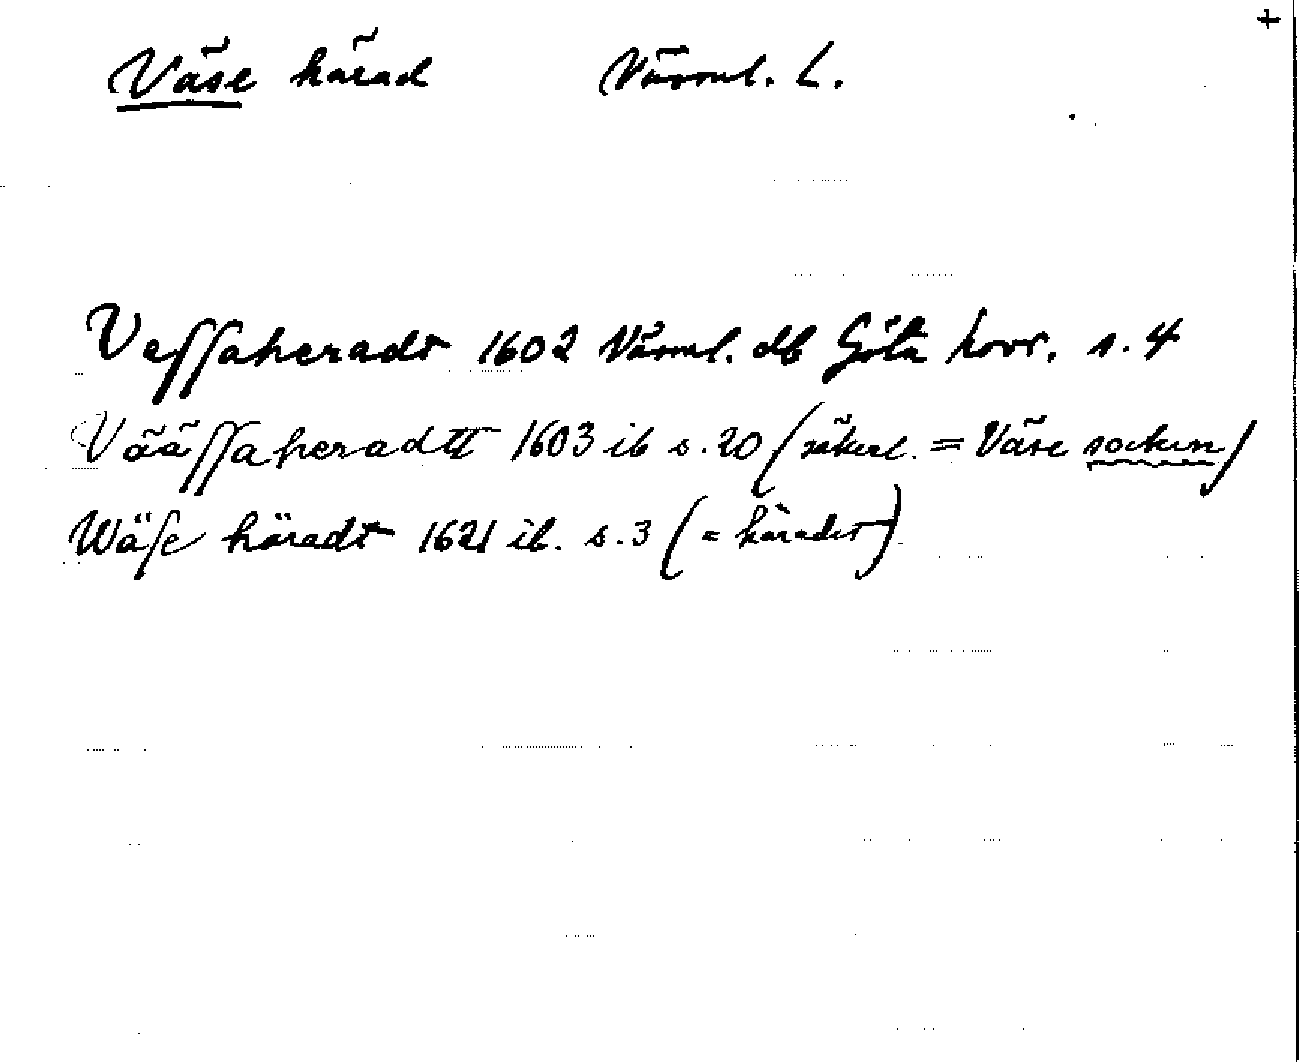 +
Väse härad Värml. L.
Vessaheradt 1602 Värml. db Göta hovr. s. 4
Väässaheradtt 1603 ib s. 20 (säkerl. = Väse socken)
Wäse häradt 1621 ib. s. 3 (= häradet)